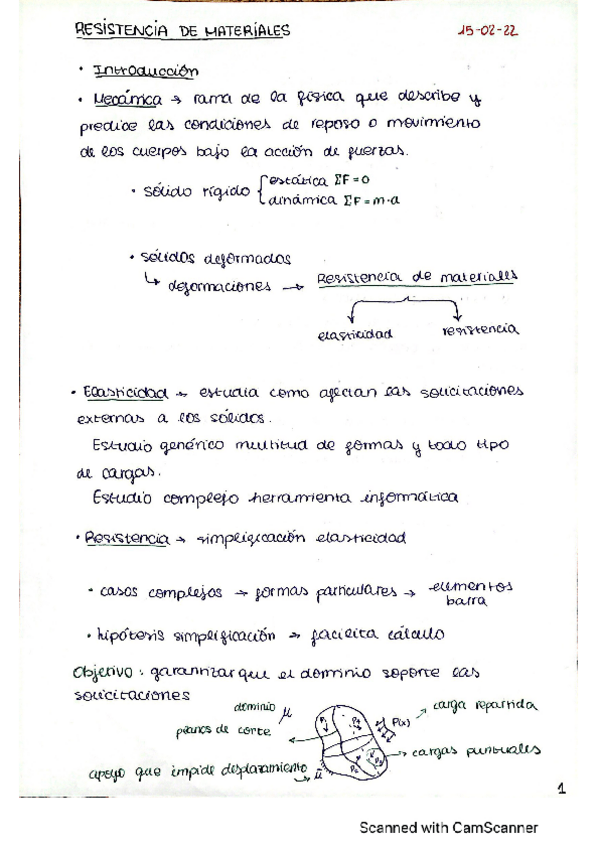 RESISTENCIA DE MATERIALES 15-02-22
• Introducción
• Mecánica → rama de la física que describe y
predice las condiciones de reposo o movimiento
de los cuerpos bajo la acción de fuerzas.
• sólido rígido { estática ΣF=0
dinámica ΣF=m·a
• sólidos deformados
↳ deformaciones → Resistencia de materiales
elasticidad resistencia
• Elasticidad → estudia como afectan las solicitaciones
externas a los sólidos.
Estudio genérico multitud de formas y todo tipo
de cargas.
Estudio complejo herramienta informática
• Resistencia → simplificación elasticidad
• casos complejos → formas particulares → elementos
barra
• hipótesis simplificación → facilita cálculo
Objetivo: garantizar que el dominio soporte las
solicitaciones
dominio μ P(x) → carga repartida
planos de corte
→ cargas puntuales
apoyo que impide desplazamiento
1
Scanned with CamScanner